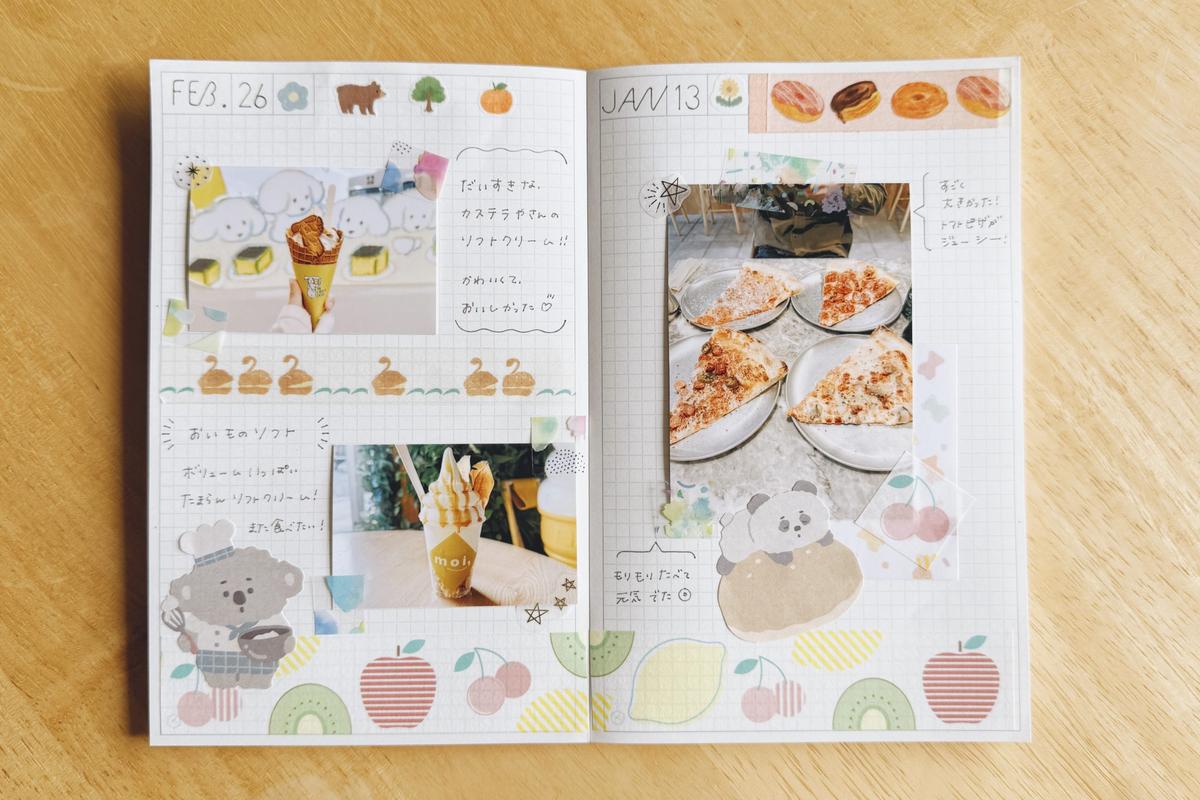 FEB. 26
だいすきな、
カステラやさんの
ソフトクリーム!!
かわいくて、
おいしかった♡
おいものソフト
ボリュームいっぱい
たまらんソフトクリーム!
また食べたい!
moi,
JAN 13
すごく
大きかった!
トマトピザが
ジューシー!
もりもりたべて
元気でた